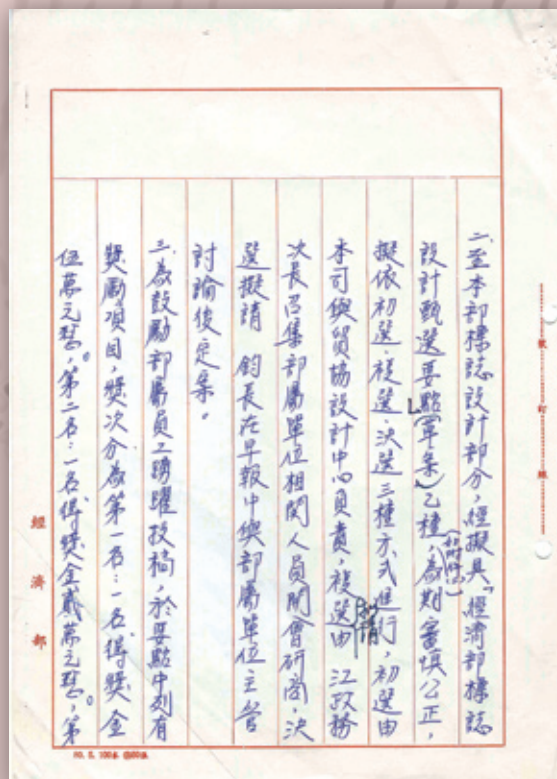 二、至本部標誌設計部分,經擬具「經濟部標誌
設計甄選要點(草案)」乙種(如附件二),為期審慎公正,
擬依初選、複選、決選三種方式進行,初選由
本司與貿協設計中心負責,複選擬請由 江政務
次長召集部屬單位相關人員開會研商,決
選擬請 鈞長在早報中與部屬單位主管
討論後定案。
三、為鼓勵部屬員工踴躍投稿,於要點中列有
獎勵項目,獎次分為第一名:一名得獎金
伍萬元整。第二名:一名得獎金貳萬元整。第
經濟部
裝訂線